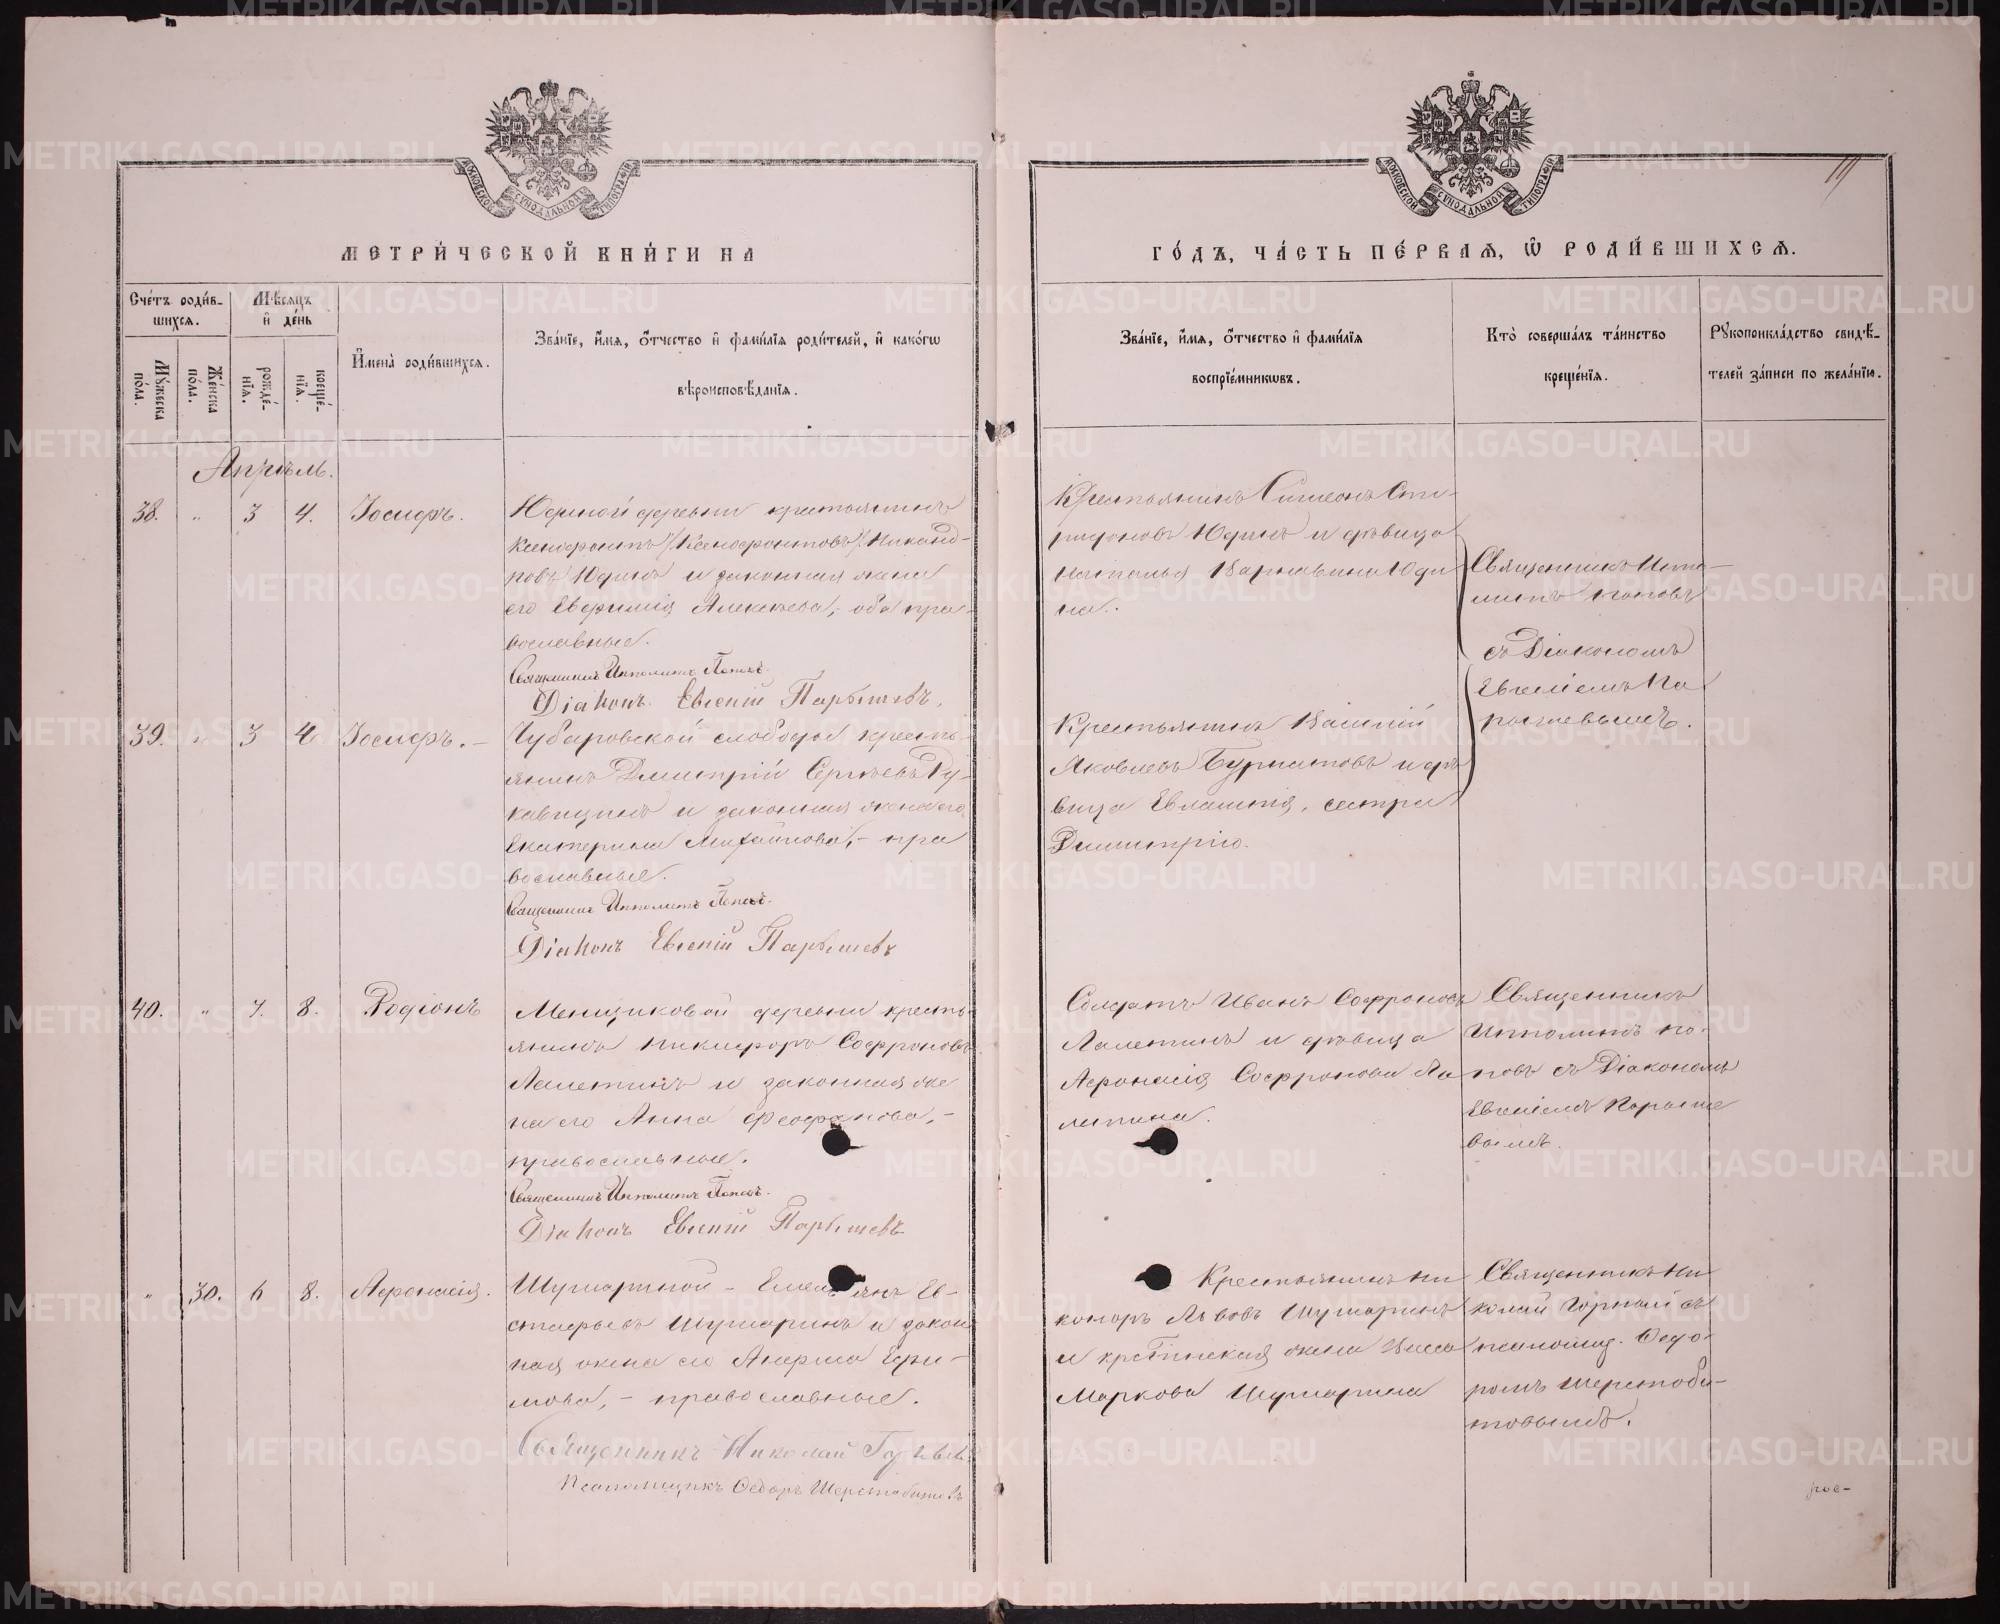 МЕТРИ́ЧЕСКОЙ КНИ́ГИ НА
ГО́ДЪ, ЧА́СТЬ ПЕ́РВАѦ, Ѡ҆ РОДИ́ВШИХСѦ.
Сче́тъ роди́в-
шихсѧ.
Мѣ́сѧцъ
и҆ де́нь
И҆мена̀ роди́вшихсѧ.
Зва́нїе, и҆́мѧ, ѻ҆́тчество и҆ фами́лїѧ роди́телей, и҆ како́гѡ
вѣроисповѣ́данїѧ.
Мꙋ́жеска
по́ла.
Же́нска
по́ла.
рожде́-
нїѧ.
креще́-
нїѧ.
Зва́нїе, и҆́мѧ, ѻ҆́тчество и҆ фами́лїѧ
воспрїе́мникѡвъ.
Кто̀ соверша́лъ та́инство
креще́нїѧ.
Рꙋкоприкла́дство свидѣ́-
телей за́писи по жела́нїю.
Апрѣль.
38. " 3 4. Іосифъ.
Юдиной деревни крестьянинъ
Ксенофонтъ /Ксенофонтовъ/ Никанд-
ровъ Юдинъ и законная жена
его Евфимія Алексѣева, оба пра-
вославные.
Священникъ Ипполитъ Поповъ.
Діаконъ Евгеній Парышевъ.
Крестьянинъ Симеонъ Спи-
ридоновъ Юдинъ и дѣвица
Наталья Варнавина Юди
на.
Священникъ Иппо-
литъ Поповъ
съ Діакономъ
Евгеніемъ Па
рышевымъ.
39. " 3 4 Іосифъ.
Чубаровской слободы кресть-
янинъ Димитрій Сергѣевъ Ру-
кавицинъ и законная жена его
Екатерина Михайлова, - пра
вославные.
Священникъ Ипполитъ Поповъ.
Діаконъ Евгеній Парышевъ
Крестьянинъ Василій
Яковлевъ Бурматовъ и дѣ
вица Евлампія, сестра
Димитрію.
40. " 7. 8. Родіонъ
Менщиковой деревни кресть-
янинъ Никифоръ Софроновъ
Лапетинъ и законная же
на его Анна Феофанова, -
православные.
Священникъ Ипполитъ Поповъ.
Діаконъ Евгеній Парышевъ
Солдатъ Иванъ Софроновъ
Лапетинъ и дѣвица
Афонасія Софронова Ла
петина.
Священникъ
Ипполитъ По-
повъ съ Діакономъ
Евгеніемъ Парыше
вымъ.
" 30. 6 8. Афонасія.
Шумариной - Емельянъ Ев-
стафьевъ Шумаринъ и закон
ная жена его Анфиса Ефи-
мова, - православные.
Священникъ Николай
Псаломщикъ Ѳедоръ Шерстобитовъ
Крестьянинъ Ни
каноръ Львовъ Шумаринъ
и крестьянская жена Васса
Маркова Шумарина
Священникъ Ни
колай Горный съ
псаломщ. Ѳедо-
ромъ Шерстоби-
товымъ.
рос-